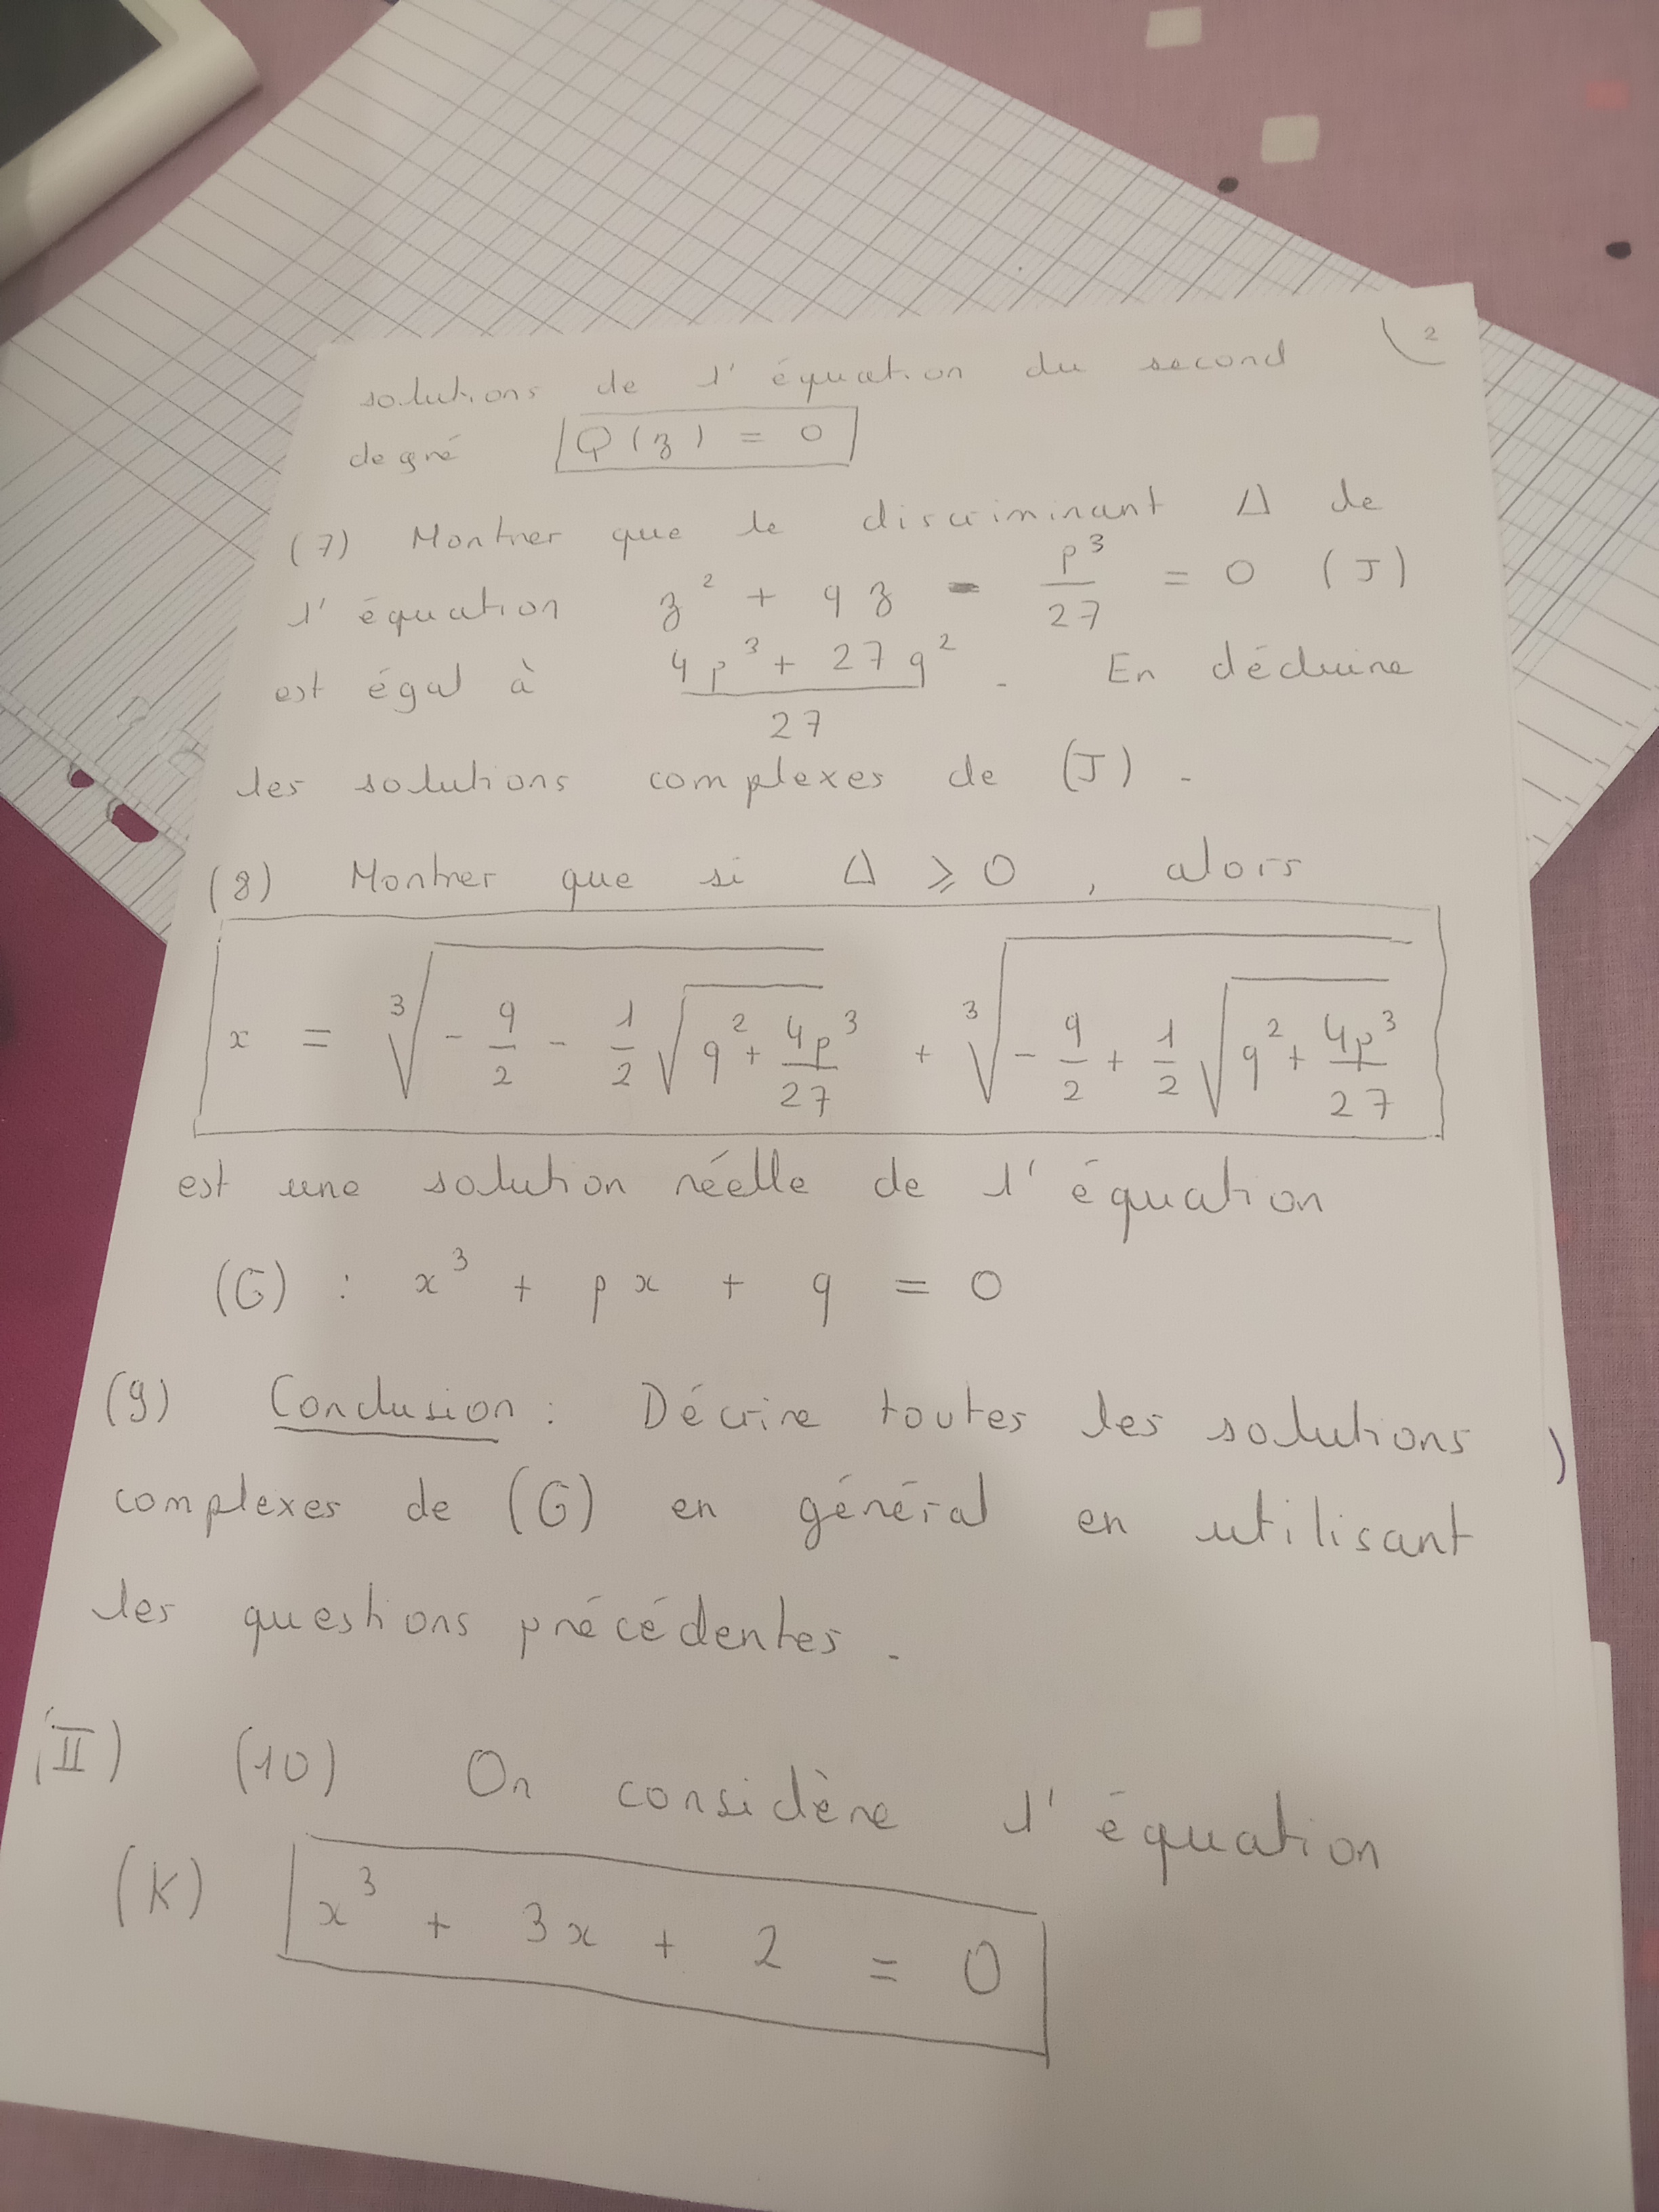 2
solutions de l'équation du second
degré Q(z) = 0
(7) Montrer que le discriminant Δ de
l'équation z² + qz - p³/27 = 0 (J)
est égal à (4p³ + 27q²)/27 . En déduire
les solutions complexes de (J).
(8) Montrer que si Δ ⩾ 0, alors
x = ∛(-q/2 - 1/2 √(q² + 4p³/27)) + ∛(-q/2 + 1/2 √(q² + 4p³/27))
est une solution réelle de l'équation
(G) : x³ + px + q = 0
(9) Conclusion : Décrire toutes les solutions
complexes de (G) en général en utilisant
les questions précédentes.
(II) (10) On considère l'équation
(K) x³ + 3x + 2 = 0